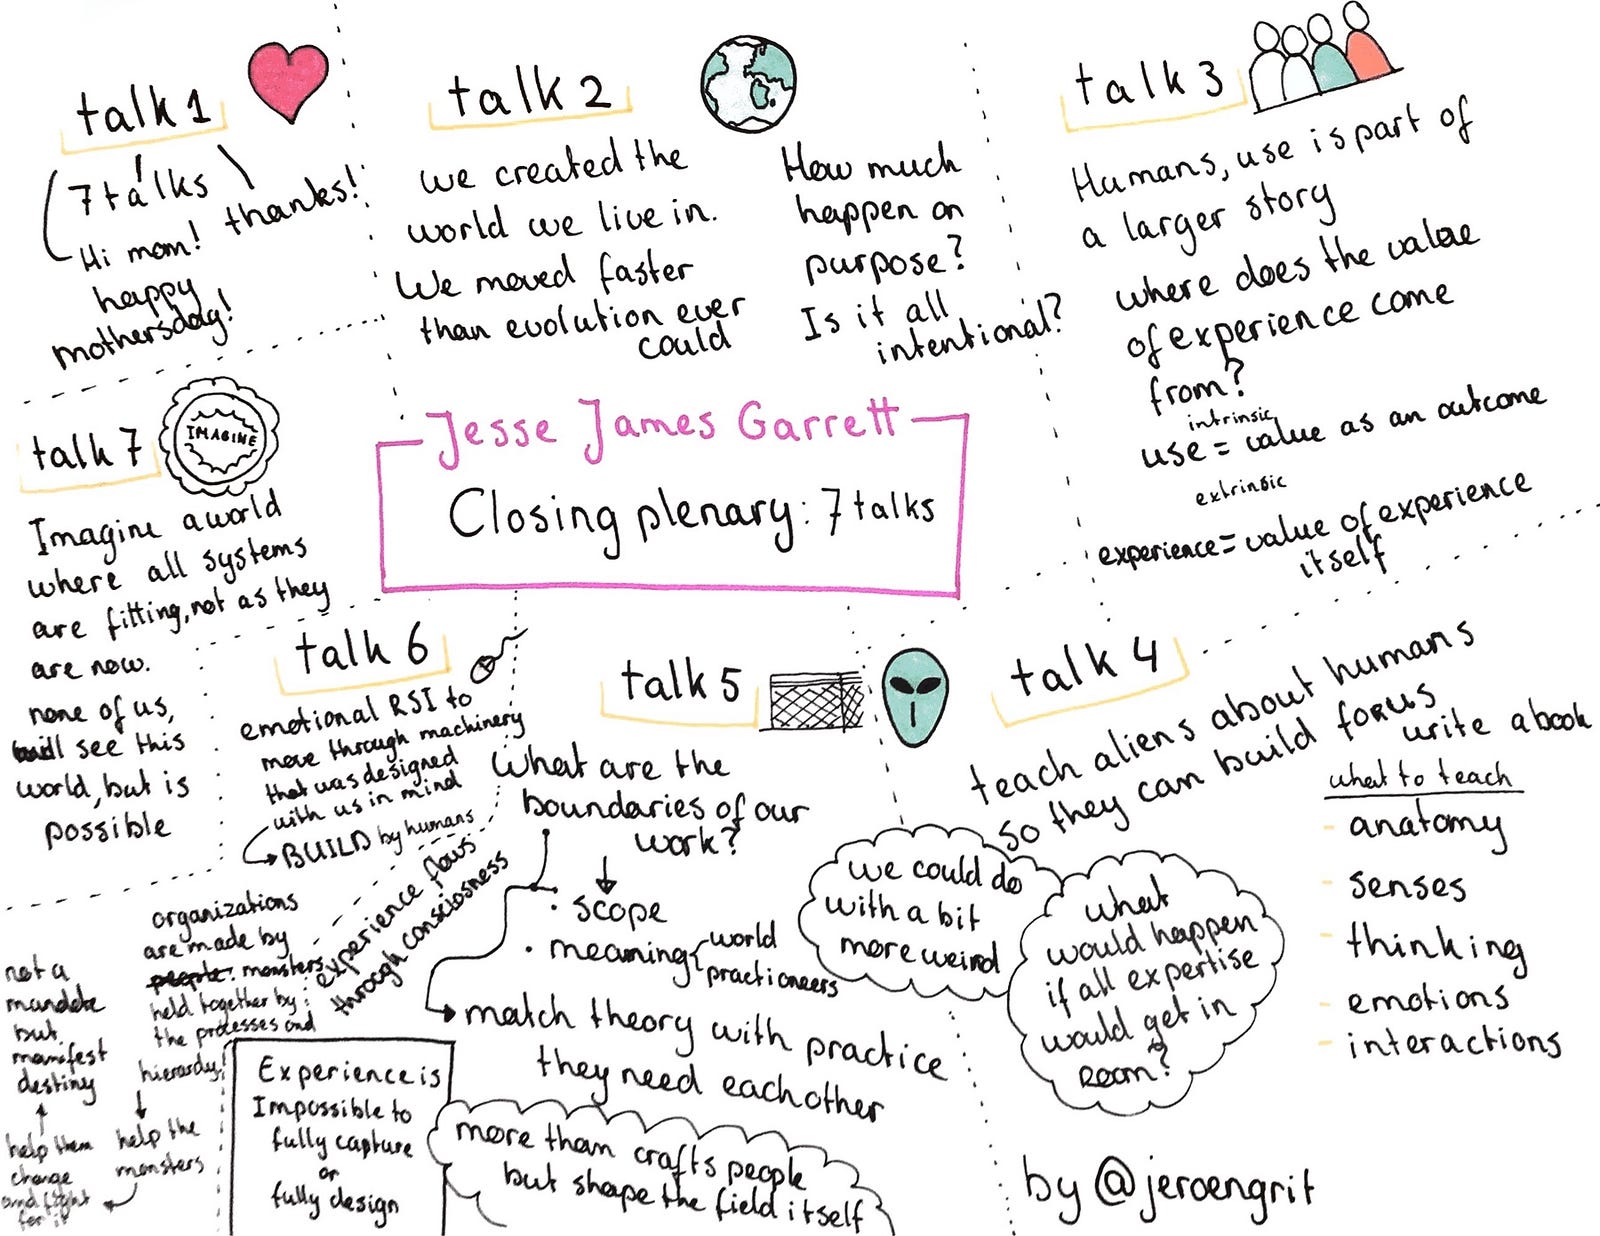 talk 1
7 talks
Hi mom! thanks!
happy
mothersday!
talk 2
we created the
world we live in.
We moved faster
than evolution ever
could
How much
happen on
purpose?
Is it all
intentional?
talk 3
Humans, use is part of
a larger story
where does the value
of experience come
from?
intrinsic
use = value as an outcome
extrinsic
experience = value of experience
itself
Jesse James Garrett
Closing plenary: 7 talks
talk 4
teach aliens about humans
so they can build for us
write a book
what to teach
- anatomy
- senses
- thinking
- emotions
- interactions
we could do
with a bit
more weird
what
would happen
if all expertise
would get in
room?
talk 5
What are the
boundaries of our
work?
· scope
· meaning { world
practioneers
match theory with practice
they need eachother
more than crafts people
but shape the field itself
talk 6
emotional RSI to
move through machinery
that was designed
with us in mind
BUILD by humans
experience flows
through consciosness
organizations
are made by
people: monsters
held together by
the processes and
hierardy!
help the
monsters
help them
change
and fight
for it
not a
mandate
but
manifest
destiny
Experience is
Impossible to
fully capture
or
fully design
talk 7
IMAGINE
Imagine a world
where all systems
are fitting, not as they
are now.
none of us,
will see this
world, but is
possible
by @jeroengrit